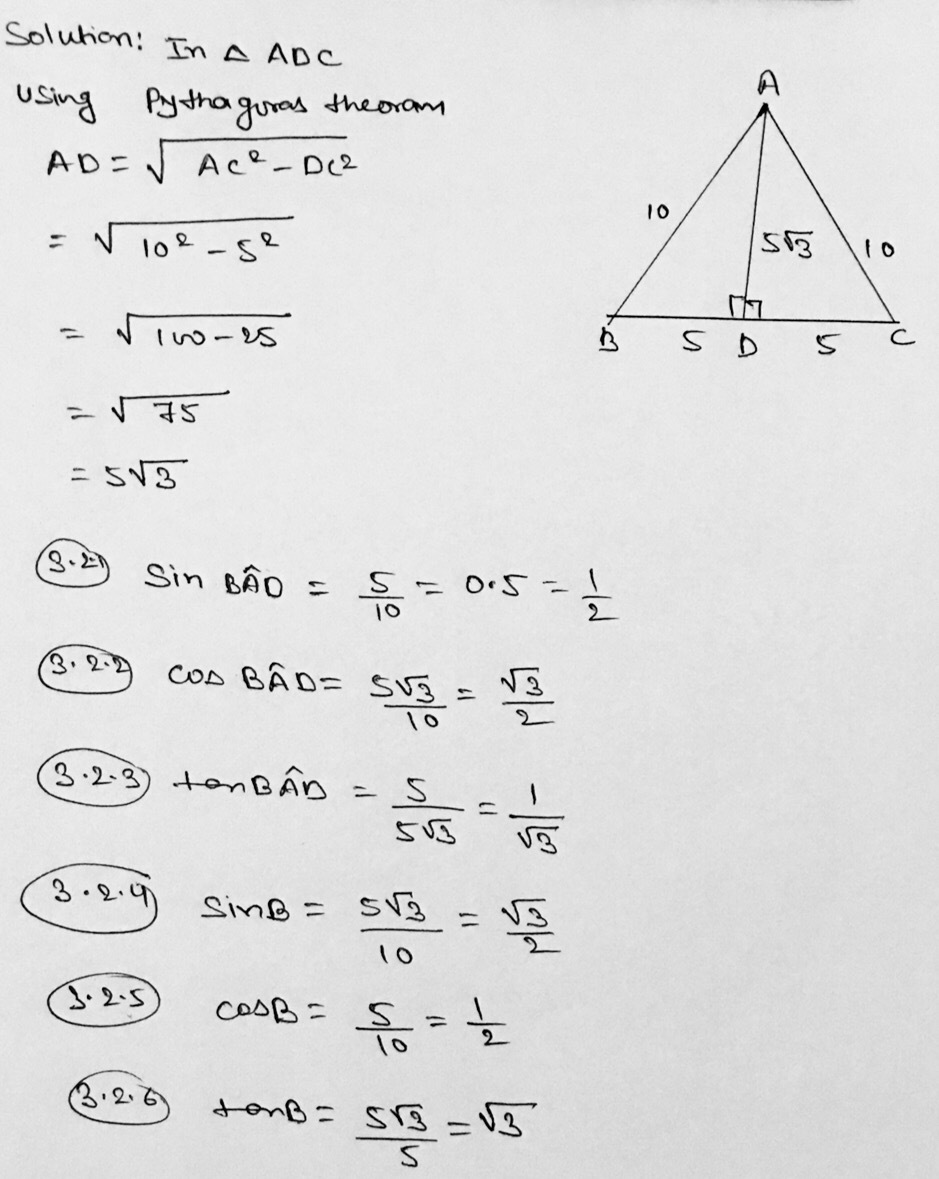 Solution: In △ ADC
Using Pythaguras theoram
AD = √(AC² - DC²)
= √(10² - 5²)
= √(100 - 25)
= √75
= 5√3
A
10
5√3
10
B 5 D 5 C
3.2.1 Sin BÂD = 5/10 = 0.5 = 1/2
3.2.2 cos BÂD = 5√3/10 = √3/2
3.2.3 tan BÂD = 5/5√3 = 1/√3
3.2.4 SinB = 5√3/10 = √3/2
3.2.5 cosB = 5/10 = 1/2
3.2.6 tanB = 5√3/5 = √3